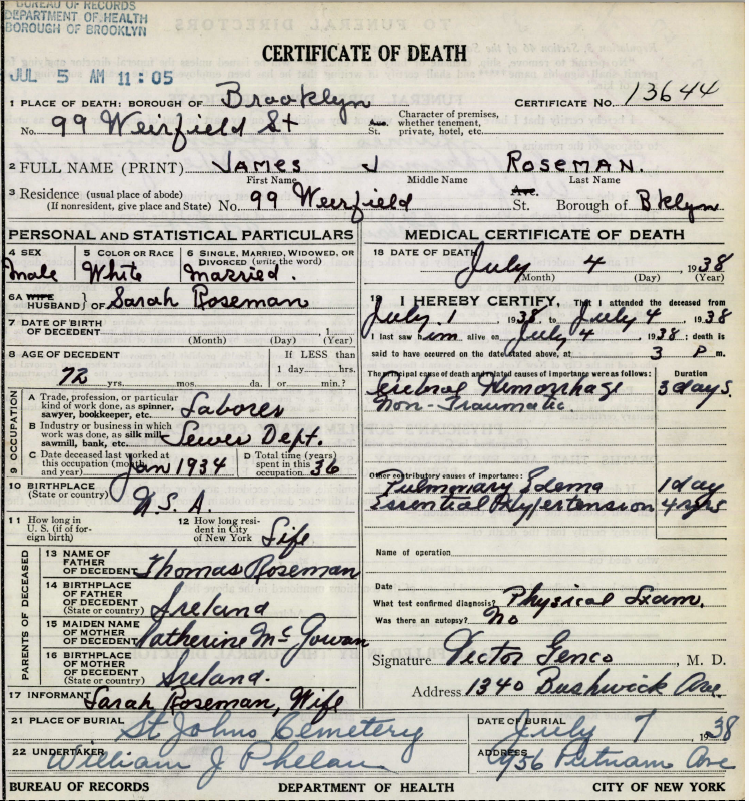 BUREAU OF RECORDS
DEPARTMENT OF HEALTH
BOROUGH OF BROOKLYN
CERTIFICATE OF DEATH
JUL 5 AM 11:05
1 PLACE OF DEATH: BOROUGH OF Brooklyn CERTIFICATE No. 13644
No. 99 Weirfield St Ave. St. Character of premises, whether tenement, private, hotel, etc.
2 FULL NAME (PRINT) JAMES J ROSEMAN.
First Name Middle Name Last Name
3 Residence (usual place of abode)
(If nonresident, give place and State) No. 99 Weirfield Ave. St. Borough of Bklyn
PERSONAL AND STATISTICAL PARTICULARS
4 SEX 5 COLOR OR RACE 6 SINGLE, MARRIED, WIDOWED, OR DIVORCED (write the word)
Male White Married.
6A WIFE HUSBAND } OF Sarah Roseman
7 DATE OF BIRTH OF DECEDENT , 1
(Month) (Day) (Year)
8 AGE OF DECEDENT If LESS than
1 day hrs.
72 yrs. mos. da. or min.?
9 OCCUPATION
A Trade, profession, or particular kind of work done, as spinner, sawyer, bookkeeper, etc. Laborer
B Industry or business in which work was done, as silk mill, sawmill, bank, etc. Sewer Dept.
C Date deceased last worked at this occupation (month and year) Jan 1934 D Total time (years) spent in this occupation 36
10 BIRTHPLACE (State or country) U.S.A.
11 How long in U. S. (if of foreign birth) 12 How long resident in City of New York Life
PARENTS OF DECEASED
13 NAME OF FATHER OF DECEDENT Thomas Roseman
14 BIRTHPLACE OF FATHER OF DECEDENT (State or country) Ireland
15 MAIDEN NAME OF MOTHER OF DECEDENT Katherine McGowan
16 BIRTHPLACE OF MOTHER OF DECEDENT (State or country) Ireland.
17 INFORMANT Sarah Roseman, Wife
MEDICAL CERTIFICATE OF DEATH
18 DATE OF DEATH July 4 1938
(Month) (Day) (Year)
19 I HEREBY CERTIFY, That I attended the deceased from
July 1, 1938 to July 4, 1938
I last saw him alive on July 4, 1938; death is
said to have occurred on the date stated above, at 3 P m.
The principal cause of death and related causes of importance were as follows: Duration
Cerebral Hemorrhage 3 days.
Non-Traumatic.
Other contributory causes of importance:
Pulmonary Edema 1 day
Essential Hypertension 4 yrs
Name of operation
Date
What test confirmed diagnosis? Physical Exam.
Was there an autopsy? No
Signature Victor Genco, M. D.
Address 1340 Bushwick Ave.
21 PLACE OF BURIAL St Johns Cemetery DATE OF BURIAL July 7 1938
22 UNDERTAKER William J Phelan ADDRESS 956 Putnam Ave
BUREAU OF RECORDS DEPARTMENT OF HEALTH CITY OF NEW YORK